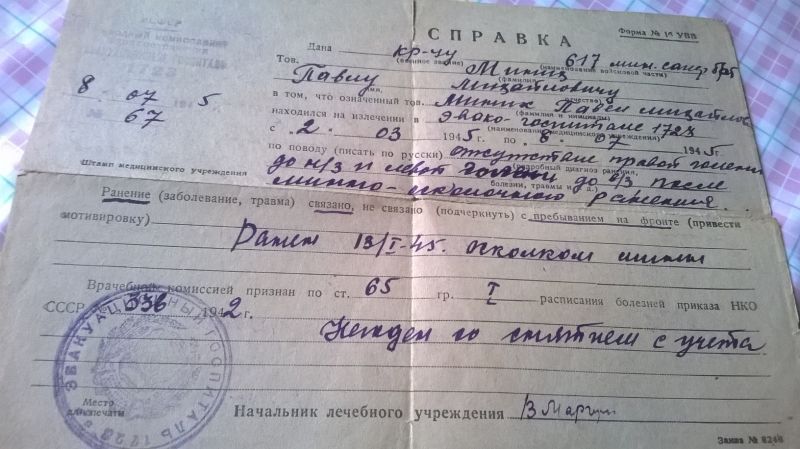 СПРАВКА
Форма № 16 УВВ
Дана кр-цу 617 мин. сапер
(военное звание) (наименование войсковой части)
Тов. Миник
(фамилия)
Павлу Михайловичу
8 07 1945
67
в том, что означенный тов. Миник Павел Михайлов
(фамилия и инициалы)
находился на излечении в эвако-госпитале 1728
(наименование медицинского учреждения)
с „2. 03 1945 г. по „8. 07 1945 г.
Штамп медицинского учреждения
по поводу (писать по русски) отсутствие правой голени
(подробный диагноз ранения,
до н/з и левой голени до в/з после
болезни, травмы и п.)
минно-осколочного ранения.
Ранение (заболевание, травма) связано, не связано (подчеркнуть) с пребыванием на фронте (привести
мотивировку)
Ранен 13/I-45. осколком мины
Врачебной комиссией признан по ст. 65 гр. I расписания болезней приказа НКО
СССР 336 1942 г.
Негоден со снятием с учета
ЭВАКУАЦИОННЫЙ ГОСПИТАЛЬ 1728
Место
печати
Начальник лечебного учреждения
Заказ № 8248